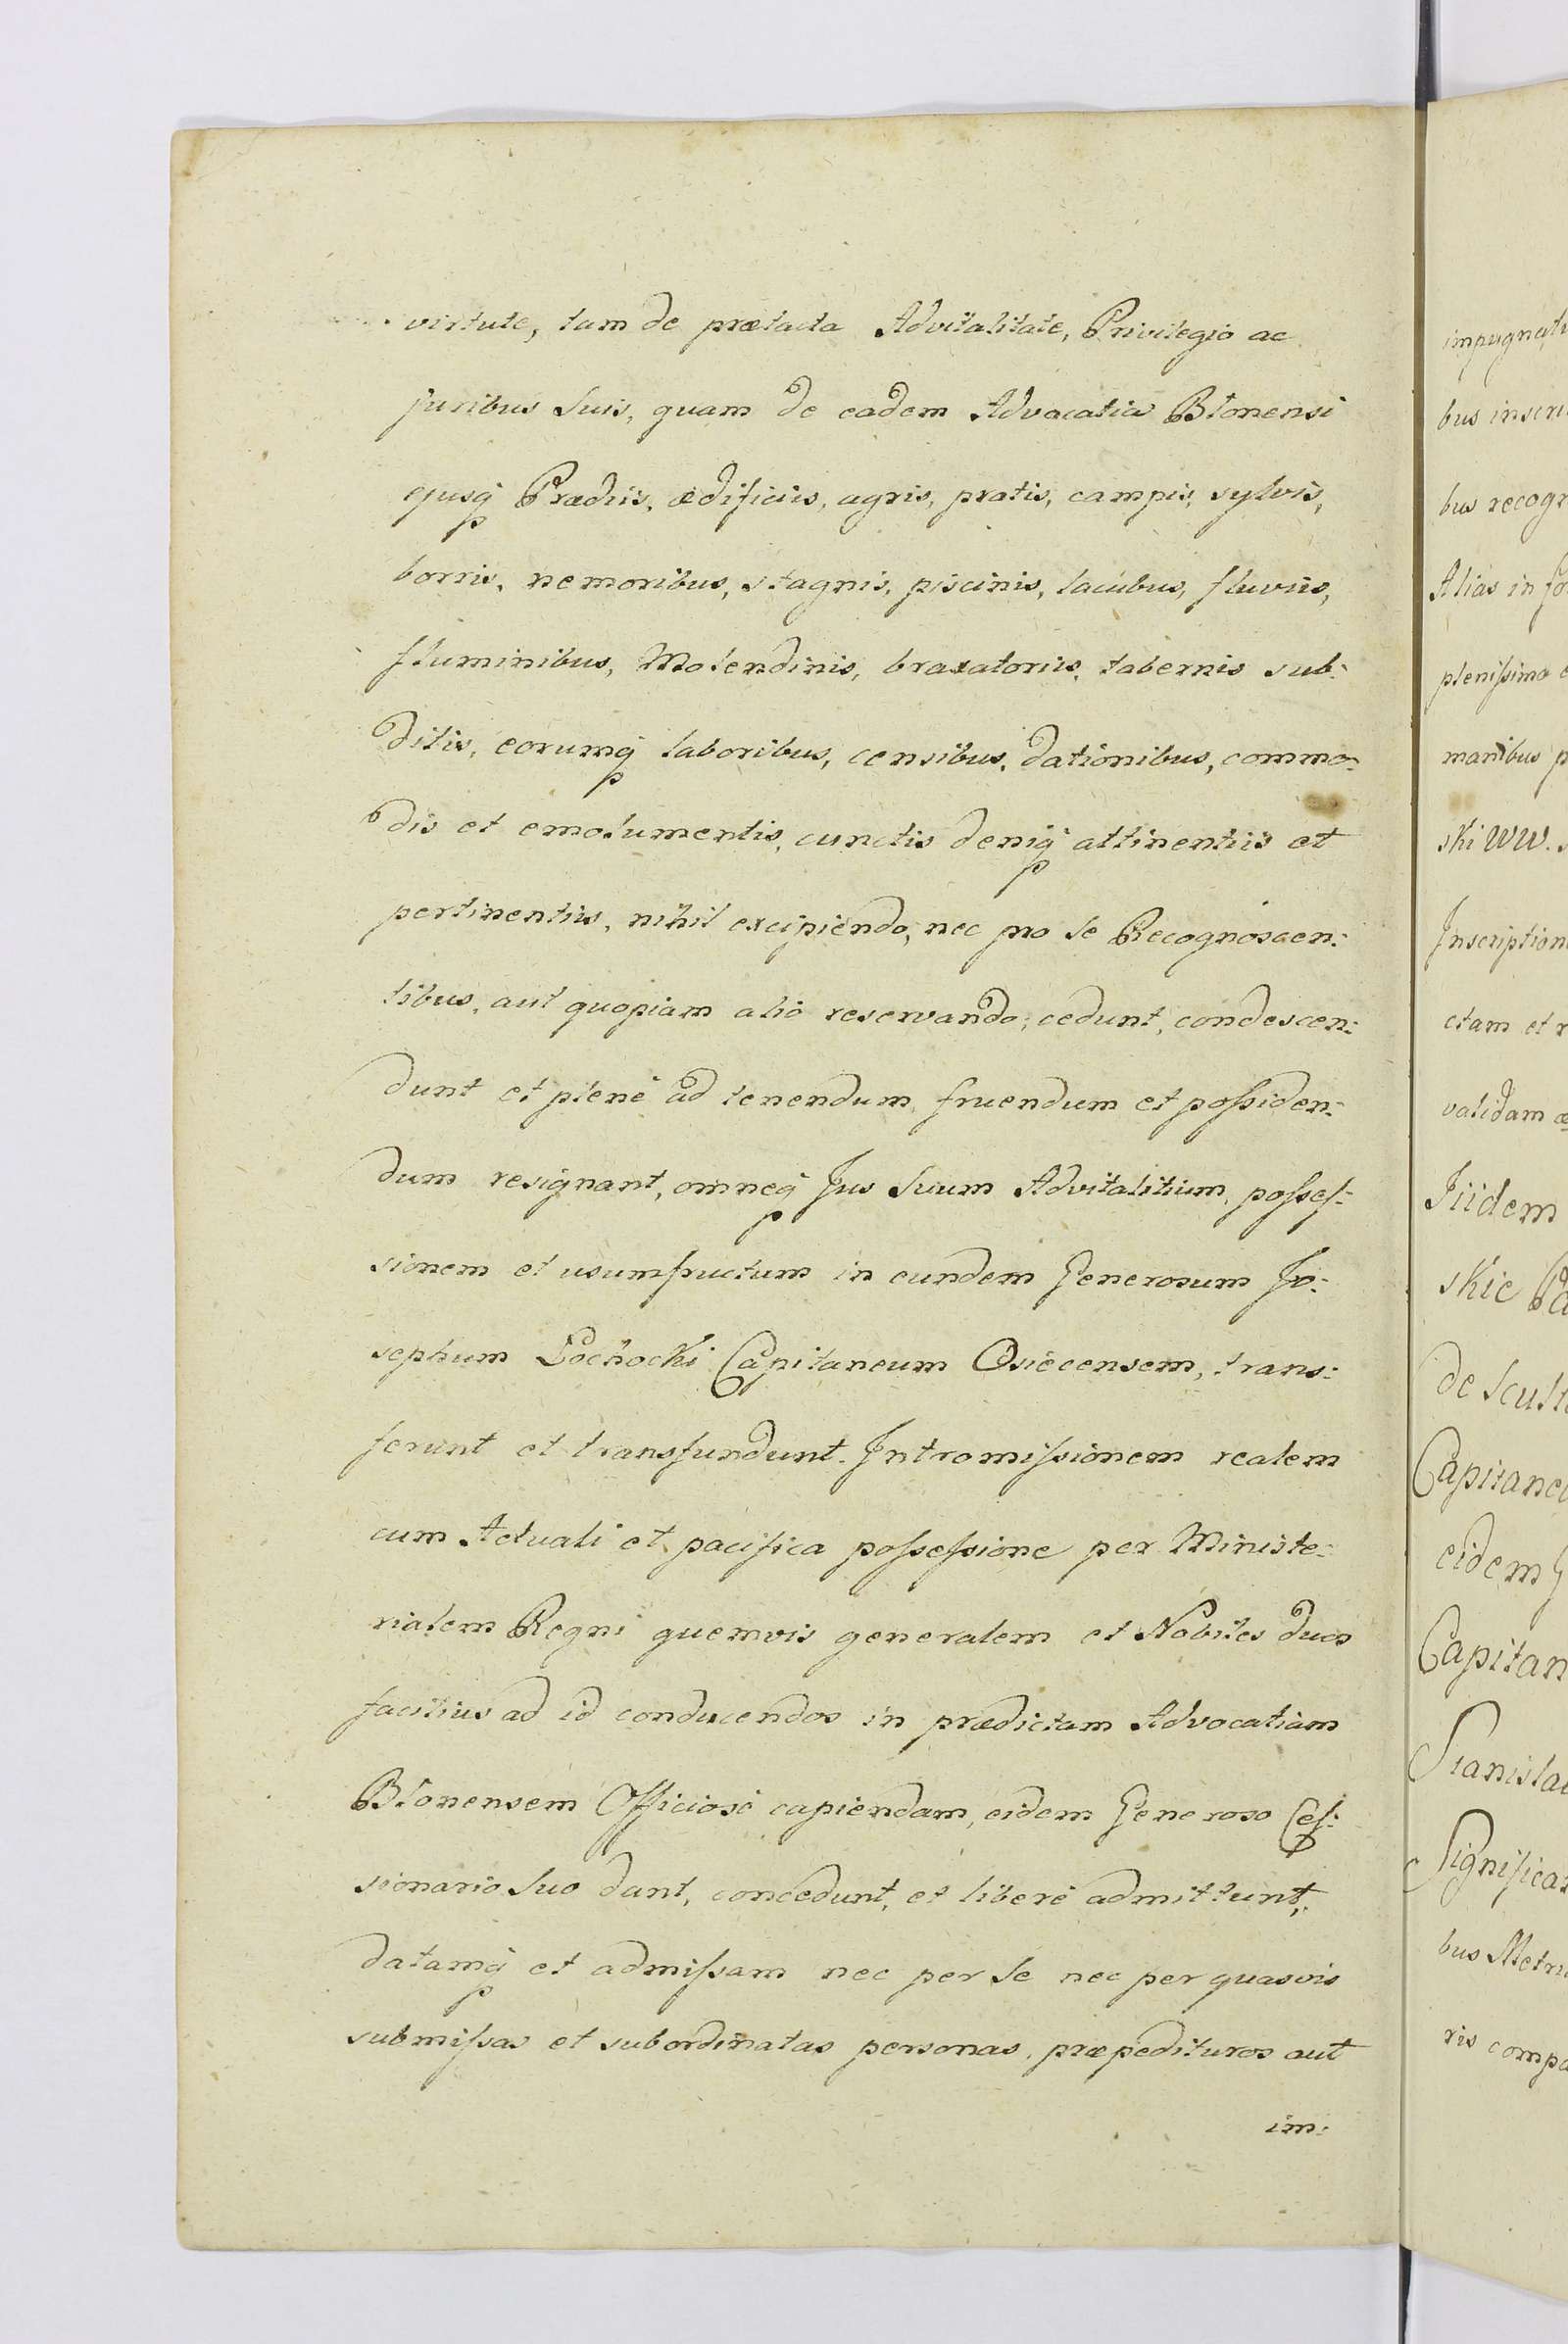 virtute, tam de prætacta Advitalitate, Privilegio ac
juribus Suis, quam de eadem Advocatia Błonensi
ejusq Prædiis, ædificiis, agris, pratis, campis, sylvis,
borris, nemoribus, stagnis, piscinis, lacubus, fluviis,
fluminibus, Molendinis, braxatoriis, tabernis sub:
ditis, eorumq laboribus, censibus, dationibus, commo:
dis et emolumentis, cunctis deniq attinentiis et
pertinentiis, nihil excipiendo, nec pro se Recognoscen:
tibus, aut quopiam alio reservando; cedunt, condescen:
dunt et plenè ad tenendum, fruendum et poſsiden:
dum resignant, omneq Jus Suum Advitalitium, poſseſ:
sionem et usumfructum in eundem Generosum Jo:
sephum Łochocki Capitaneum Osiecensem, trans:
ferunt et transfundunt. Intromiſsionem realem
cum Actuali et pacifica poſseſsione per Ministe:
rialem Regni quemvis generalem et Nobiles duos
facilius ad id conducendos in prædictam Advocatiam
Błonensem Officiosè capiendam, eidem Generoso Ceſ:
sionario Suo dant, concedunt, et liberè admittunt,
datamq et admiſsam nec per Se nec per quasvis
submiſsas et subordinatas personas, præpedituros aut
im:
impugnatu
bus inscri
bus recogn
Alias in fo
pleniſsima
manibus p
ski WW.
Inscription
ctam et r
validam
Iiidem
skie
de Scult
Capitane
eidem G
Capitan
Stanislau
Significa
bus Metri
ris compa